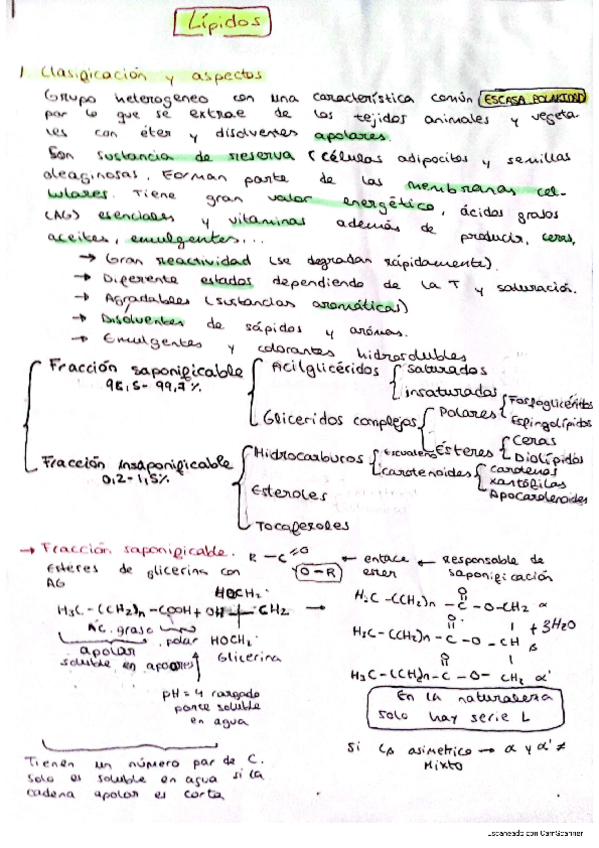 Lípidos
1. Clasificación y aspectos
Grupo heterogeneo con una característica común ESCASA POLARIDAD
por lo que se extrae de los tejidos animales y vegeta
les con éter y disolventes apolares.
Son sustancia de reserva (células adipocitos y semillas
oleaginosas. Forman parte de las membranas cel-
ulares. Tiene gran valor energético, ácidos grasos
(AG) esenciales y vitaminas además de producir, ceras,
aceites, emulgentes...
→ Gran reactividad (se degradan rápidamente).
→ Diferente estados dependiendo de la T y saturación.
→ Agradables (sustancias aromáticas)
→ Disolventes de sápidos y arómas.
→ Emulgentes y colorantes hidrosolubles
Fracción saponificable
98,5-99,7%
Acilglicéridos
saturados
insaturados
Gliceridos complejos
Polares
Fosfoglicéridos
Esfingolípidos
Ésteres
Ceras
Diolípidos
Fracción Insaponificable
0,2-1,5%
Hidrocarburos
Escualeno
carotenoides
carotenos
xantofilas
Apocarotenoides
Esteroles
Tocoferoles
→ Fracción saponificable.
Esteres de glicerina con
AG
R-C=O
O-R
← enlace ← responsable de
ester saponificación
H3C-(CH2)n-COOH + OH
HOCH2
CH2
HOCH2
→
Ac. graso
polar
Glicerina
apolar
soluble en apolares
pH=4 cargado
parte soluble
en agua
H3C-(CH2)n-C-O-CH2 α
O
H3C-(CH2)n-C-O-CH β
O
H3C-(CH2)n-C-O-CH2 α'
O
+ 3H2O
En la naturaleza
solo hay serie L
Tienen un número par de C.
Solo es soluble en agua si la
cadena apolar es corta
Si asimetrico → α y α' ≠
Mixto
Escaneado con CamScanner